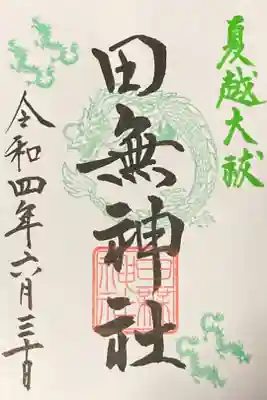 夏越大祓
田無神社
令和四年六月三十日
田無神社